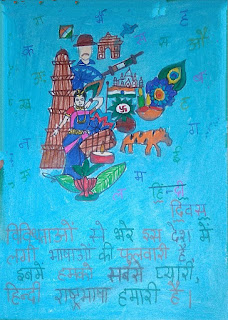 हिन्दी
दिवस
विविधताओं से भरे इस देश में
लगी भाषाओं की फुलवारी है
इनमें हमको सबसे प्यारी,
हिन्दी राष्ट्रभाषा हमारी है।